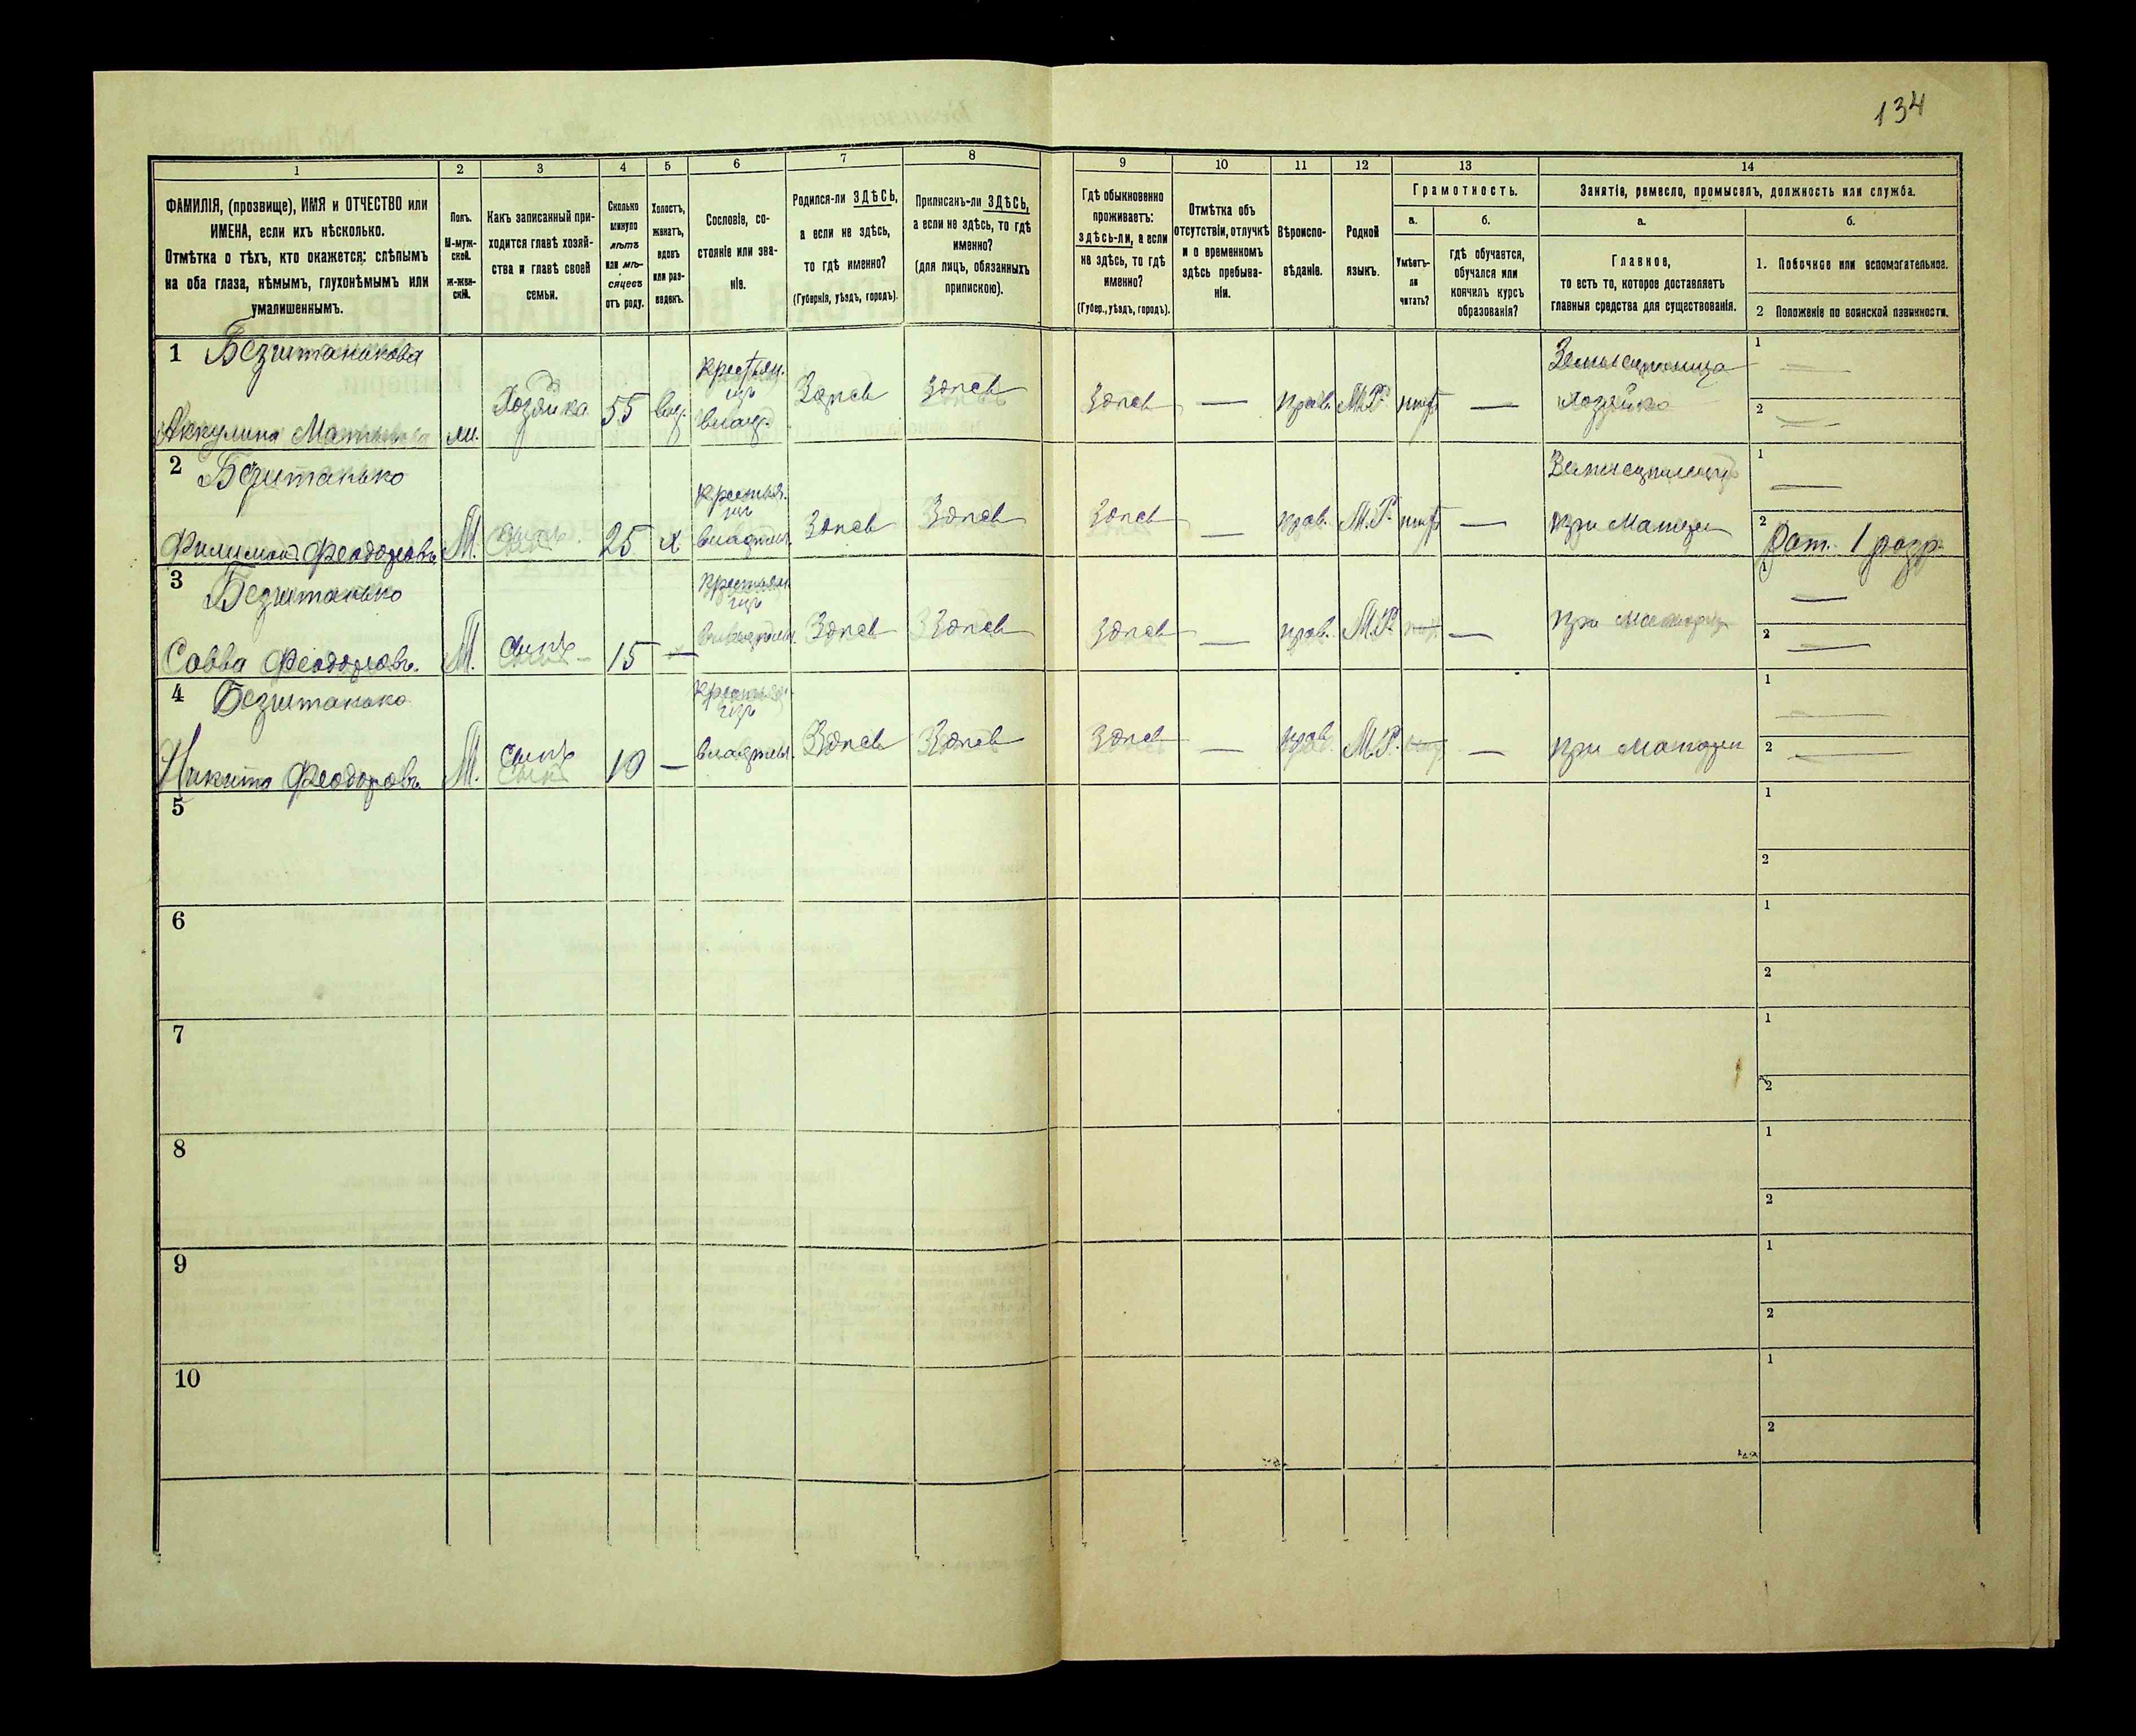 134
1 2 3 4 5 6 7 8 9 10 11 12 13 14
ФАМИЛІЯ, (прозвище), ИМЯ и ОТЧЕСТВО или
ИМЕНА, если ихъ нѣсколько.
Отмѣтка о тѣхъ, кто окажется: слѣпымъ
на оба глаза, нѣмымъ, глухонѣмымъ или
умалишеннымъ.
Полъ.
М-муж-
ской.
Ж-жен-
скій.
Какъ записанный при-
ходится главѣ хозяй-
ства и главѣ своей
семьи.
Сколько
минуло
лѣтъ
или мѣ-
сяцевъ
отъ роду.
Холостъ,
женатъ,
вдовъ
или раз-
веденъ.
Сословіе, со-
стояніе или зва-
ніе.
Родился-ли ЗДѢСЬ,
а если не здѣсь,
то гдѣ именно?
(Губернія, уѣздъ, городъ).
Приписанъ-ли ЗДѢСЬ,
а если не здѣсь, то гдѣ
именно?
(для лицъ, обязанныхъ
припискою).
Гдѣ обыкновенно
проживаетъ:
здѣсь-ли, а если
не здѣсь, то гдѣ
именно?
(Губер., уѣздъ, городъ).
Отмѣтка объ
отсутствіи, отлучкѣ
и о временномъ
здѣсь пребыва-
ніи.
Вѣроиспо-
вѣданіе.
Родной
языкъ.
Грамотность.
а.
Умѣетъ-
ли
читать?
б.
гдѣ обучается,
обучался или
кончилъ курсъ
образованія?
Занятіе, ремесло, промыселъ, должность или служба.
а.
Главное,
то есть то, которое доставляетъ
главныя средства для существованія.
б.
1. Побочное или вспомогательное.
2 Положеніе по воинской повинности.
1 Безштанькова
Аккулина
Хозяйка 55 вд.
крестьян.
изъ
владѣ.
Здѣсь Здѣсь Здѣсь — прав. М.Р. нѣтъ —
Хозяйка
1 —
2 —
2 Безштанько
Филимонъ Феодоровъ М. Сынъ 25 х
крестья.
изъ
владѣль.
Здѣсь Здѣсь Здѣсь — прав. М.Р. нѣтъ —
при Матери
1 —
2 Рат. 1 разр.
3 Безштанько
Савва Феодоровъ. М. Сынъ 15 —
крестьян
изъ
владѣль.
Здѣсь Здѣсь Здѣсь — прав. М.Р. —
при матери
1 —
2 —
4 Безштанько
Никита Феодоровъ. М. Сынъ 10 —
крестья.
изъ
владѣль.
Здѣсь Здѣсь Здѣсь — прав М.Р. —
при Матери
1 —
2 —
5
1
2
6
1
2
7
1
2
8
1
2
9
1
2
10
1
2